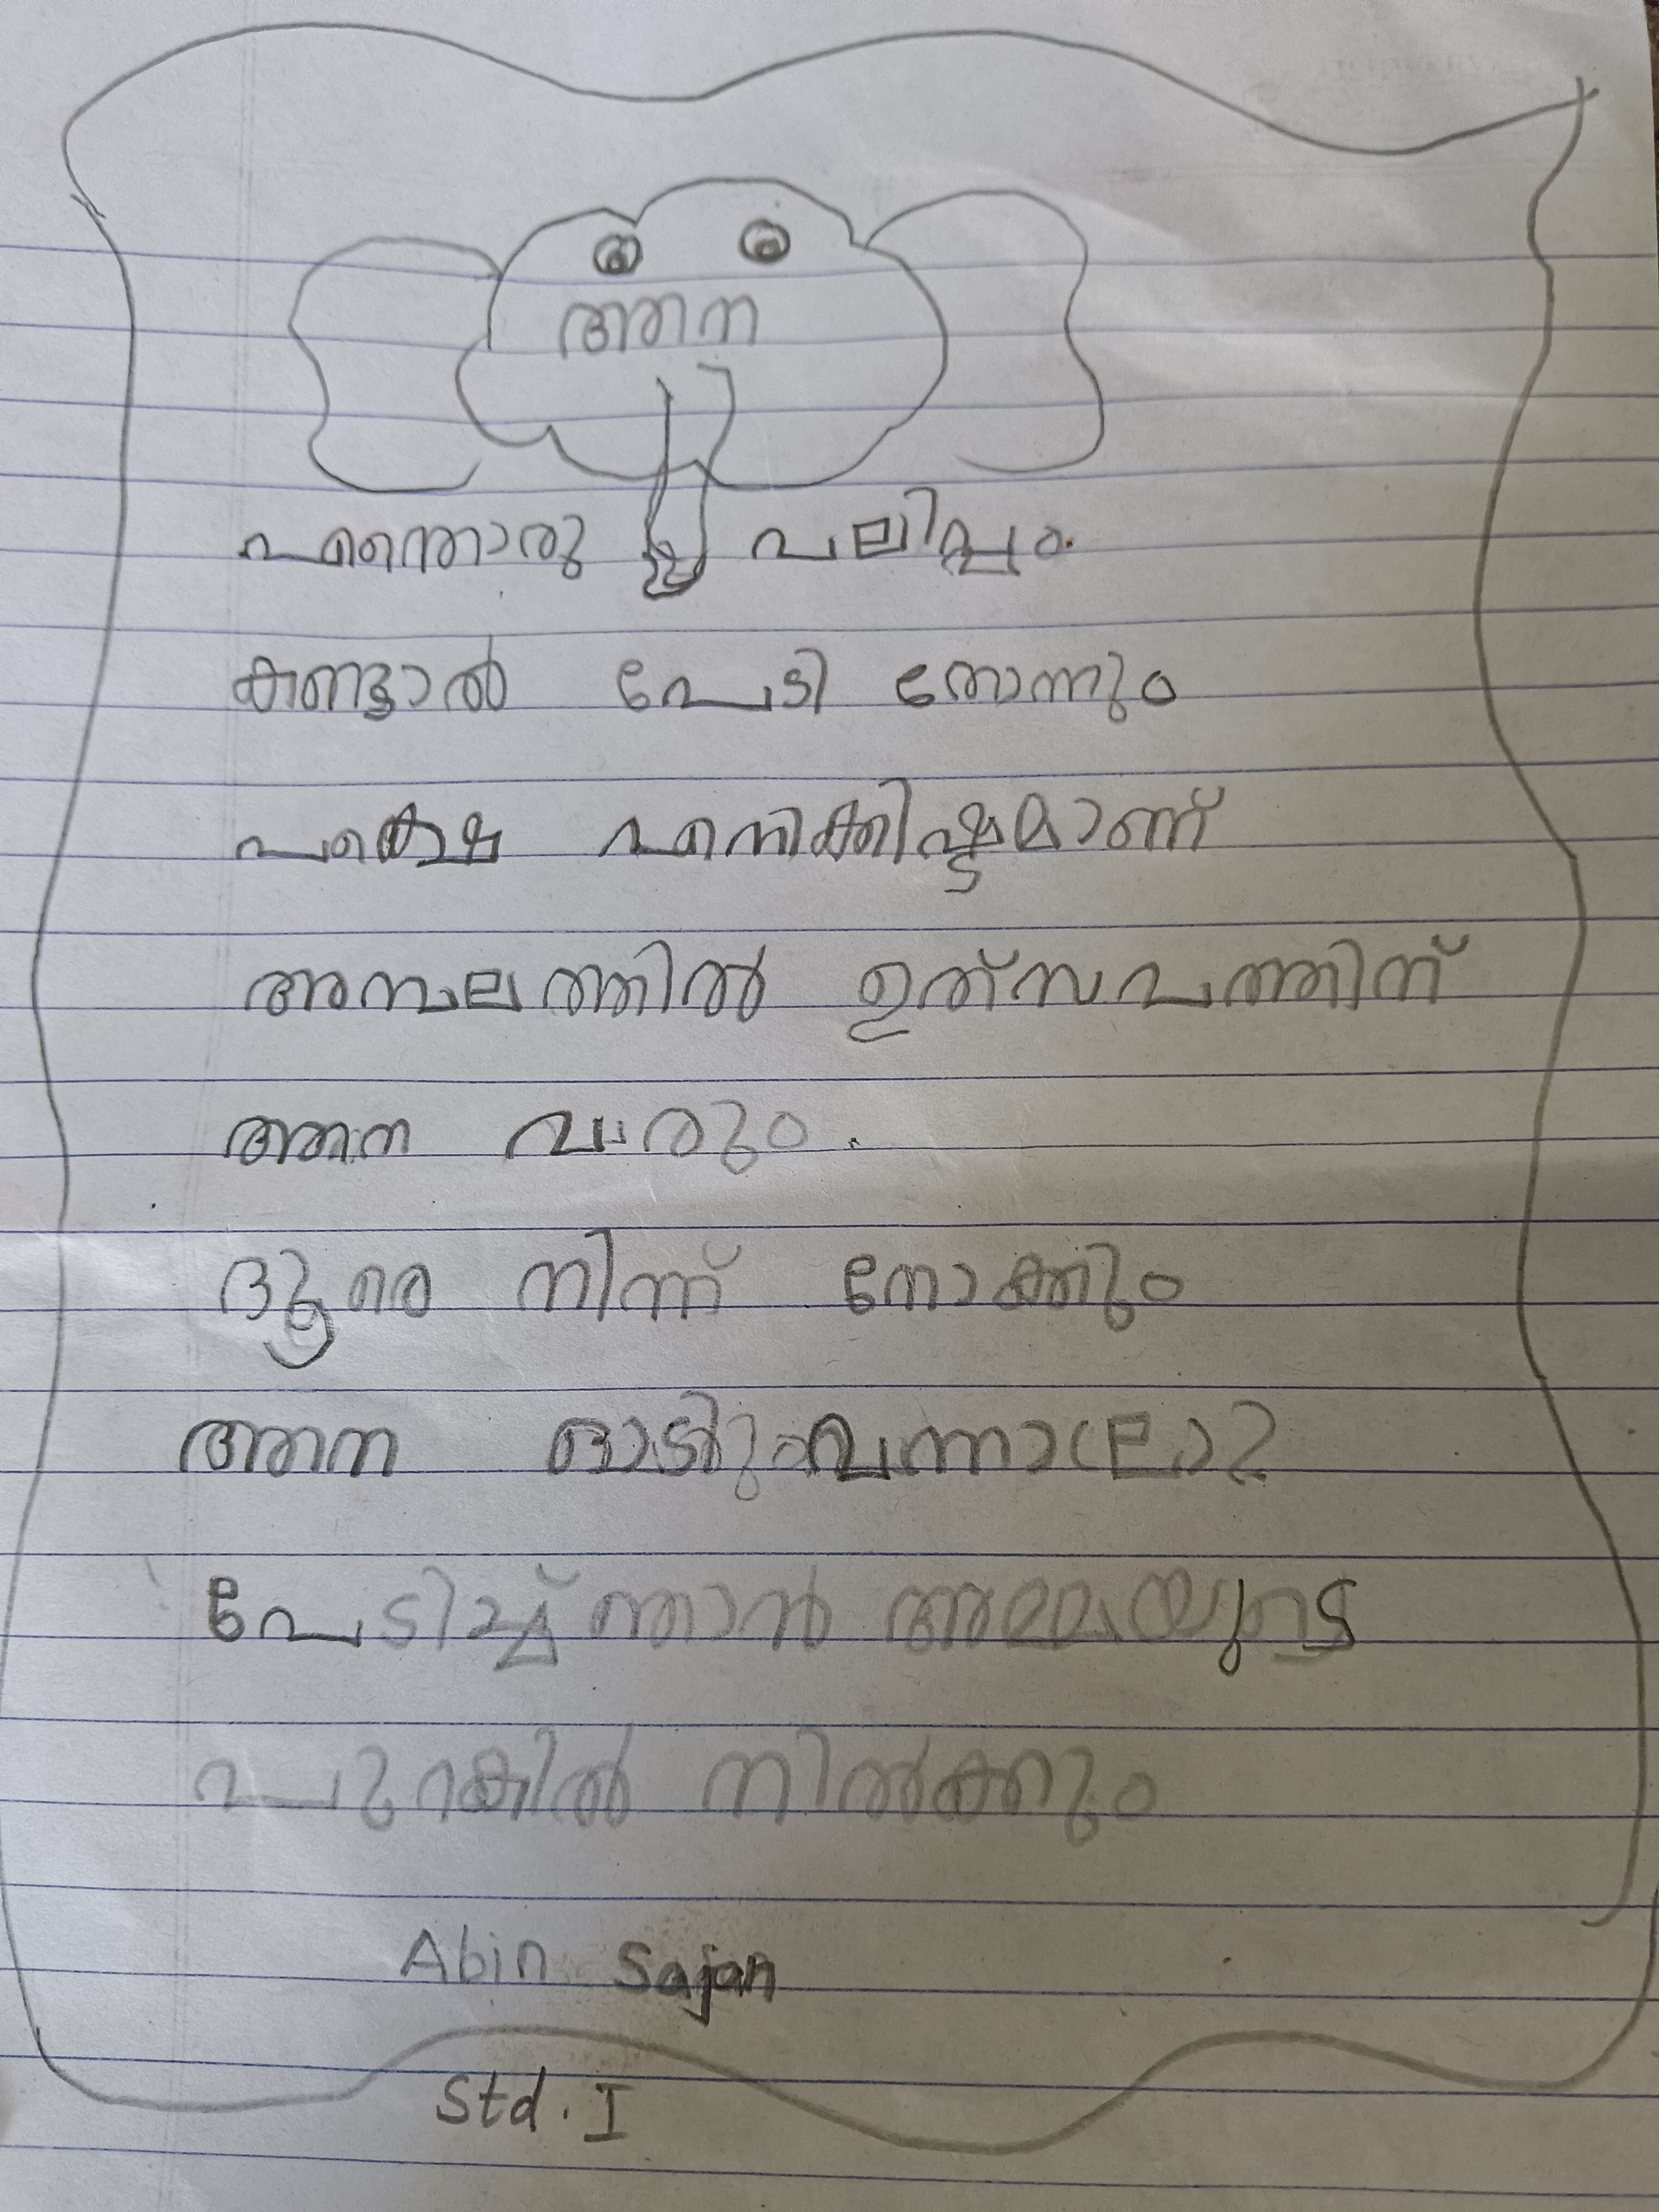 ആന
എന്തൊരു വലിപ്പം.
കണ്ടാൽ പേടി തോന്നും
പക്ഷെ എനിക്കിഷ്ടമാണ്
അമ്പലത്തിൽ ഉത്സവത്തിന്
ആന വരും.
ദൂരെ നിന്ന് നോക്കും
ആന ഓടി വന്നാലോ?
പേടിച്ച് ഞാൻ അമ്മയുടെ
പുറകിൽ നിൽക്കും
Abin Sajan
Std. I